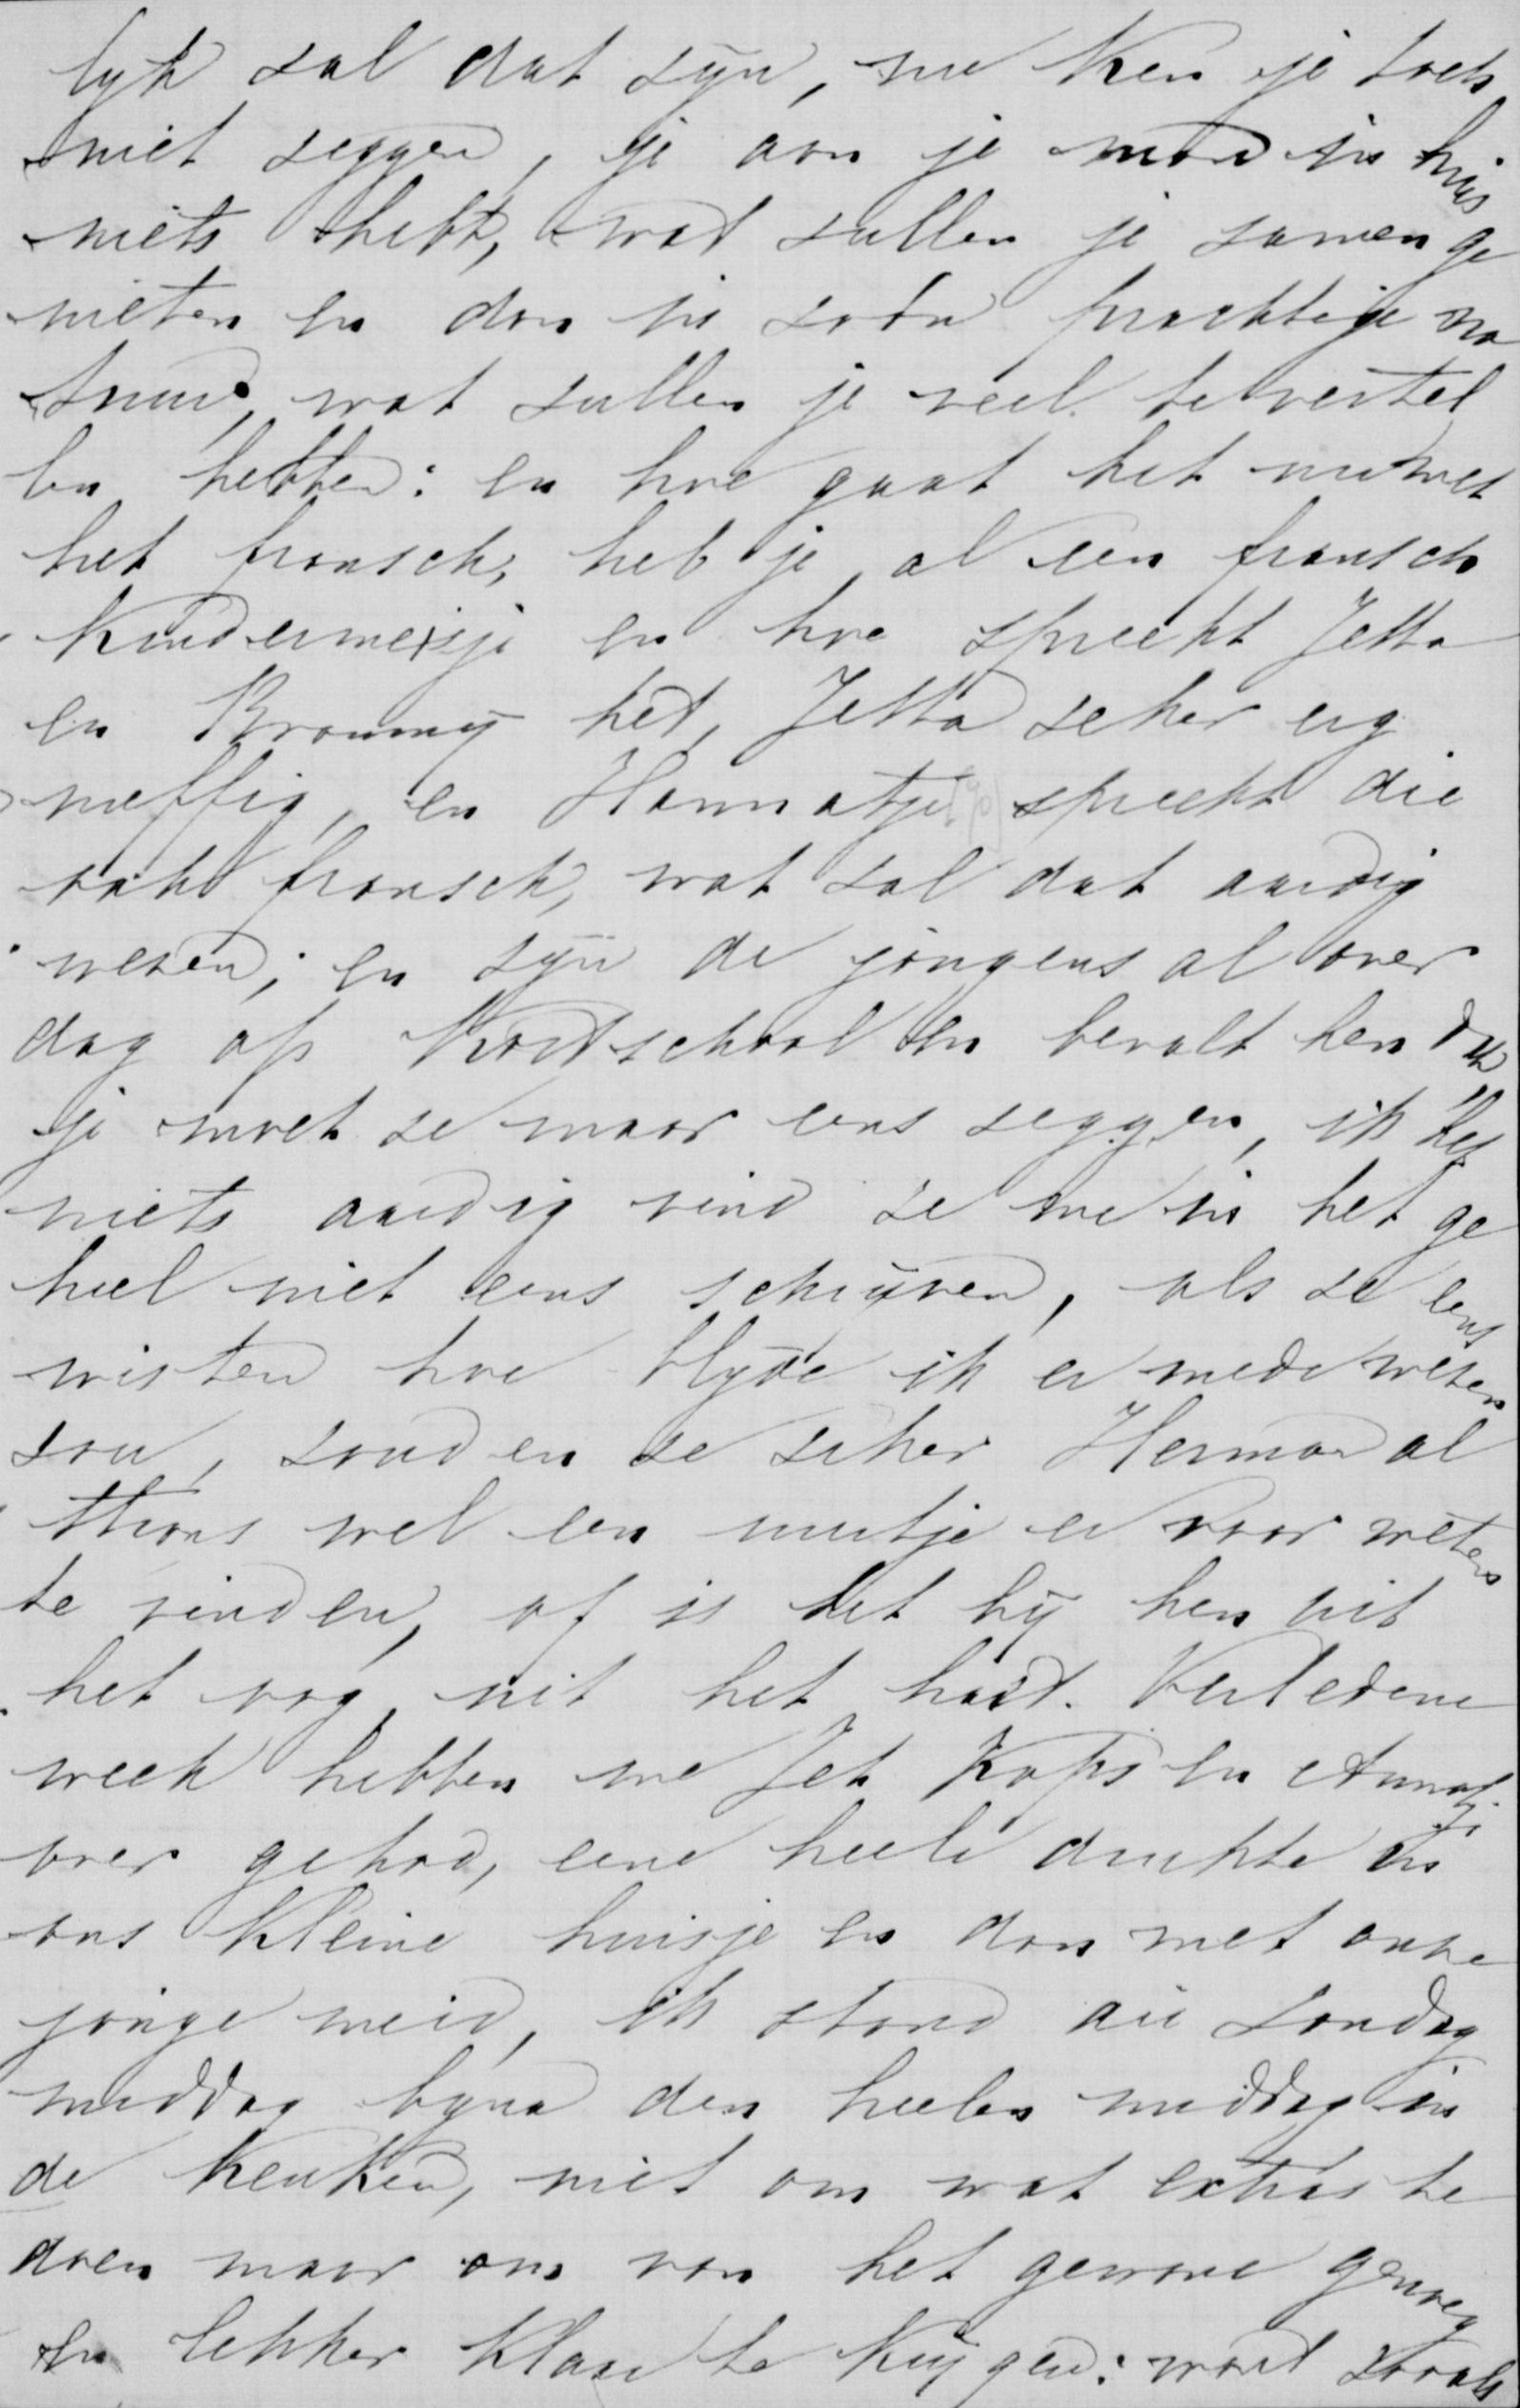 lyk sal dat syn, nu ken je toch
niet seggen, je aon je man in huis
niets hebt, wat sullen je samen ge
nieten en dan in soo'n prachtige na
tuur, wat sullen je veel te vertel
len hebben: en hoe gaat het nu met
het fransch, heb je al een fransch
Kindermeisje en hoe spreekt Jetta
en Brommy het, Jetta seker erg
neffig, en Hannatje spreekt die
ook fransch, wat sal dat aardig
wesen; en syn de jongens al over
dag op Kostschool en bevalt hen dat
je moet se maar eens seggen, ik het
niets aardig vind se me in het ge
heel niet eens schrijven, als se eens
wisten hoe blyde ik er mede wesen
sou, souden se seker Herman al
thans wel een uurtje er voor weten
te vinden, of is het by hen uit
het oog uit het hart. Verledene
week hebben we Jet Kops en Annatje
over gehad, eene heele drukte in
ons kleine huisje en dan met onse
jonge meid, ik stond die Sondag
middag byna den heelen middag in
de Keuken, niet om wat extras te
doen maar om van het gewone genoeg
en lekker klaar te krijgen: want sooals